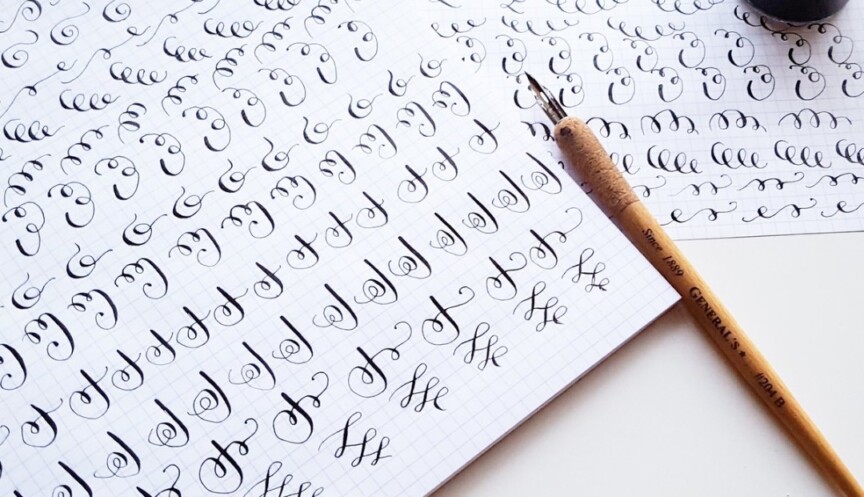 Since 1889 GENERAL'S #204 B